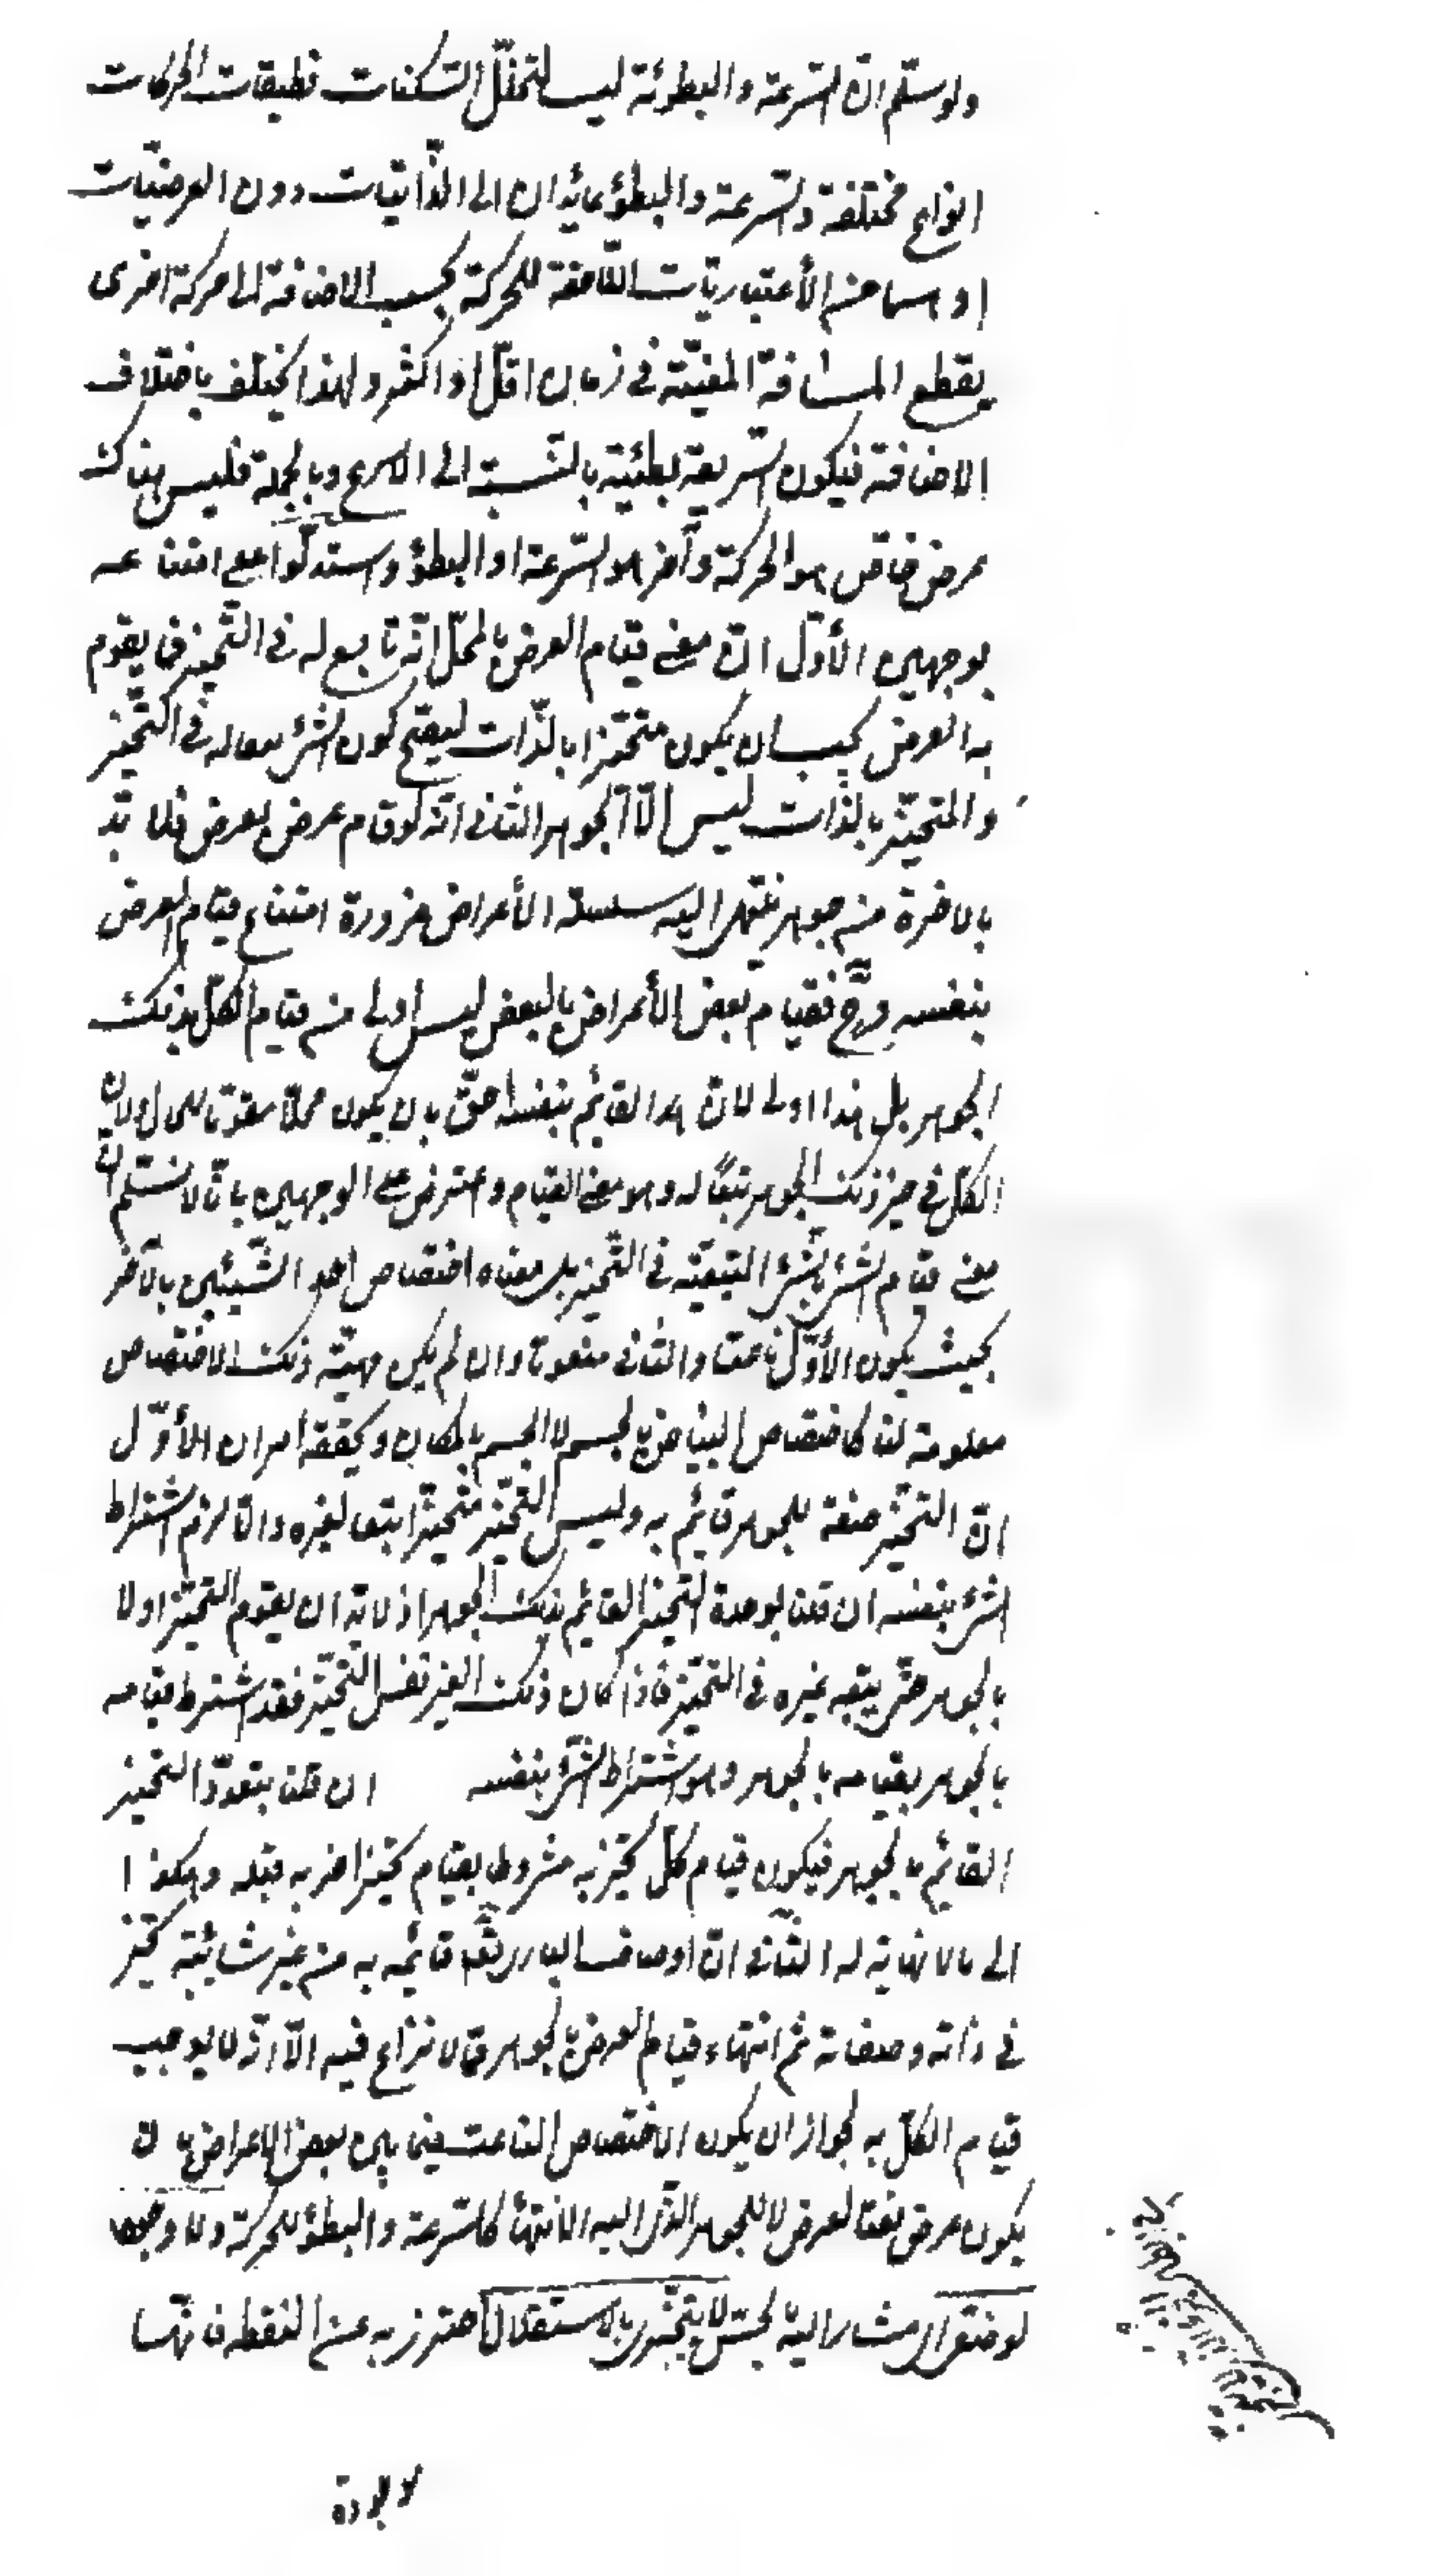 ولو سلّم انّ السّرعة والبطوئة ليس لتخلّل السّكنات فطبقات الحركات
انواع مختلفة والسّرعة والبطؤ عائدان الى الذّاتيّات دون العرضيّات
او هما من الأعتباريّات اللّاحقة للحركة بحسب الاضافة الى حركة اخرى
يقطع المسافة المعيّنة فى زمان اقلّ او اكثر ولهذا يختلف باختلاف
الاضافة فيكون السّريعة بطيئة بالنّسبة الى الاسرع وبالجملة فليس هناك
عرض خاصّ هو الحركة وآخر هو السّرعة او البطؤ واستدلّوا على امتناعه
بوجهين الأوّل انّ معنى قيام العرض بالمحلّ انّه تابع له فى التّحيّز فما يقوم
به العرض يجب ان يكون متحيّزا بالذّات ليصحّ كون الشئ تبعا له فى التّحيّز
والمتحيّز بالذّات ليس الّا الجوهر الثانى انّه لو قام عرض بعرض فلا بدّ
بالاخرة من جوهر ينتهى اليه سلسلة الأعراض ضرورة امتناع قيام العرض
بنفسه وح فقيام بعض الأعراض بالبعض ليس أولى من قيام الكلّ بذلك
الجوهر بل هذا اولى لانّ القائم بنفسه احقّ بان يكون محلّا مقوّما للحال ولانّ
الكلّ فى حيّز ذلك الجوهر تبعًا له وهو معنى القيام واعترض على الوجهين بانّا لا نسلّم انّ
معنى قيام الشئ بالشئ التبعيّة فى التّحيّز بل معناه اختصاص احد الشّيئين بالآخر
بحيث يكون الأوّل ناعتا والثانى منعوتا وان لم يكن مهيّة ذلك الاختصاص
معلومة لنا كاختصاص البياض بالجسم لا الجسم بالمكان ويحقّقه امران الأوّل
انّ التحيّز صفة للجوهر قائم به وليس التّحيّز متحيّزا تبعا لغيره والّا لزم اشتراط
الشئ بنفسه ان قلنا بوحدة التّحيّز القائم بذلك الجوهر اذ لا بدّ ان يقوم التحيّز اولا
بالجوهر حتّى يتبعه غيره فى التحيّز فاذا كان ذلك الغير نفس التّحيّز فقد اشترط قيامه
بالجوهر بقيامه بالجوهر وهو اشتراط الشئ بنفسه ان قلنا بتعدّد التحيّز
القائم بالجوهر فيكون قيام كلّ تحيّز به مشروطا بقيام تحيّز اخر به قبله وهكذا
الى ما لا نهاية له الثّانى انّ اوصاف البارى تع قائمة به من غير شائبة تحيّز
فى ذاته وصفاته ثم انتهاء قيام العرض بالجوهر ممّا لا نزاع فيه الّا انّه لا يوجب
قيام الكلّ به لجواز ان يكون الاختصاص الناعت فيما بين بعض الاعراض بان
يكون عرض نعتا لعرض لا للجوهر الّذى اليه الانتهاء كالسّرعة والبطؤ للحركة ولا وجود
لوضعىّ اى مشار اليه بحسّ لا يتجزّى بالاستقلال احترز به عن النقطه فانّها